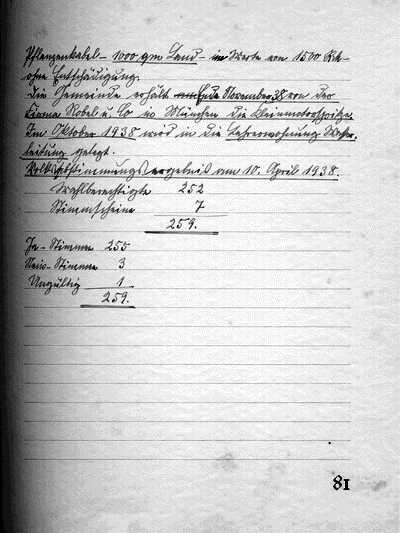 1000 qm Land – im Werte von 1500 RM –
ohne Entschädigung.
Die Gemeinde erhält Ende November 38 von der
Firma & Co in München die Kleinmotorspritze.
Im Oktober 1938 wird in die Lehrerwohnung Wasser-
leitung gelegt.
Volksabstimmungsergebnis am 10. April 1938.
Wahlberechtigte 252
Stimmscheine 7
259.
Ja-Stimmen 255
Nein-Stimmen 3
Ungültig 1
259.
81